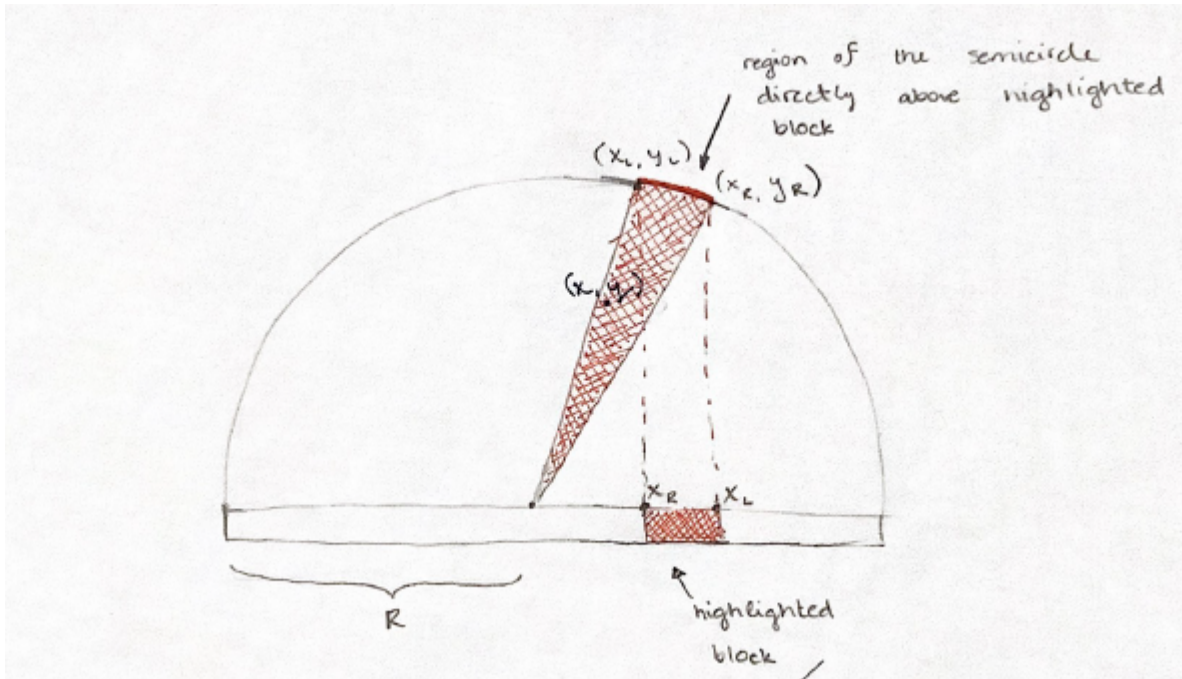 region of the semicircle
directly above highlighted
block
(x_L, y_L)
(x_R, y_R)
(x, y)
x_R x_L
R
highlighted
block